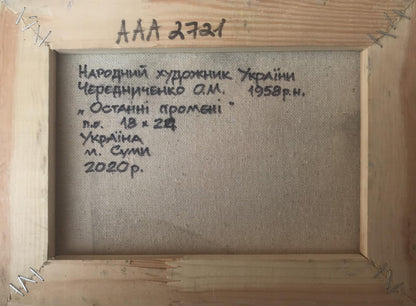 AAA 2721
Народний художник України
Чередниченко О.М. 1958р.н.
„Останні промені"
п.о. 18 × 24
Україна
м. Суми
2020р.